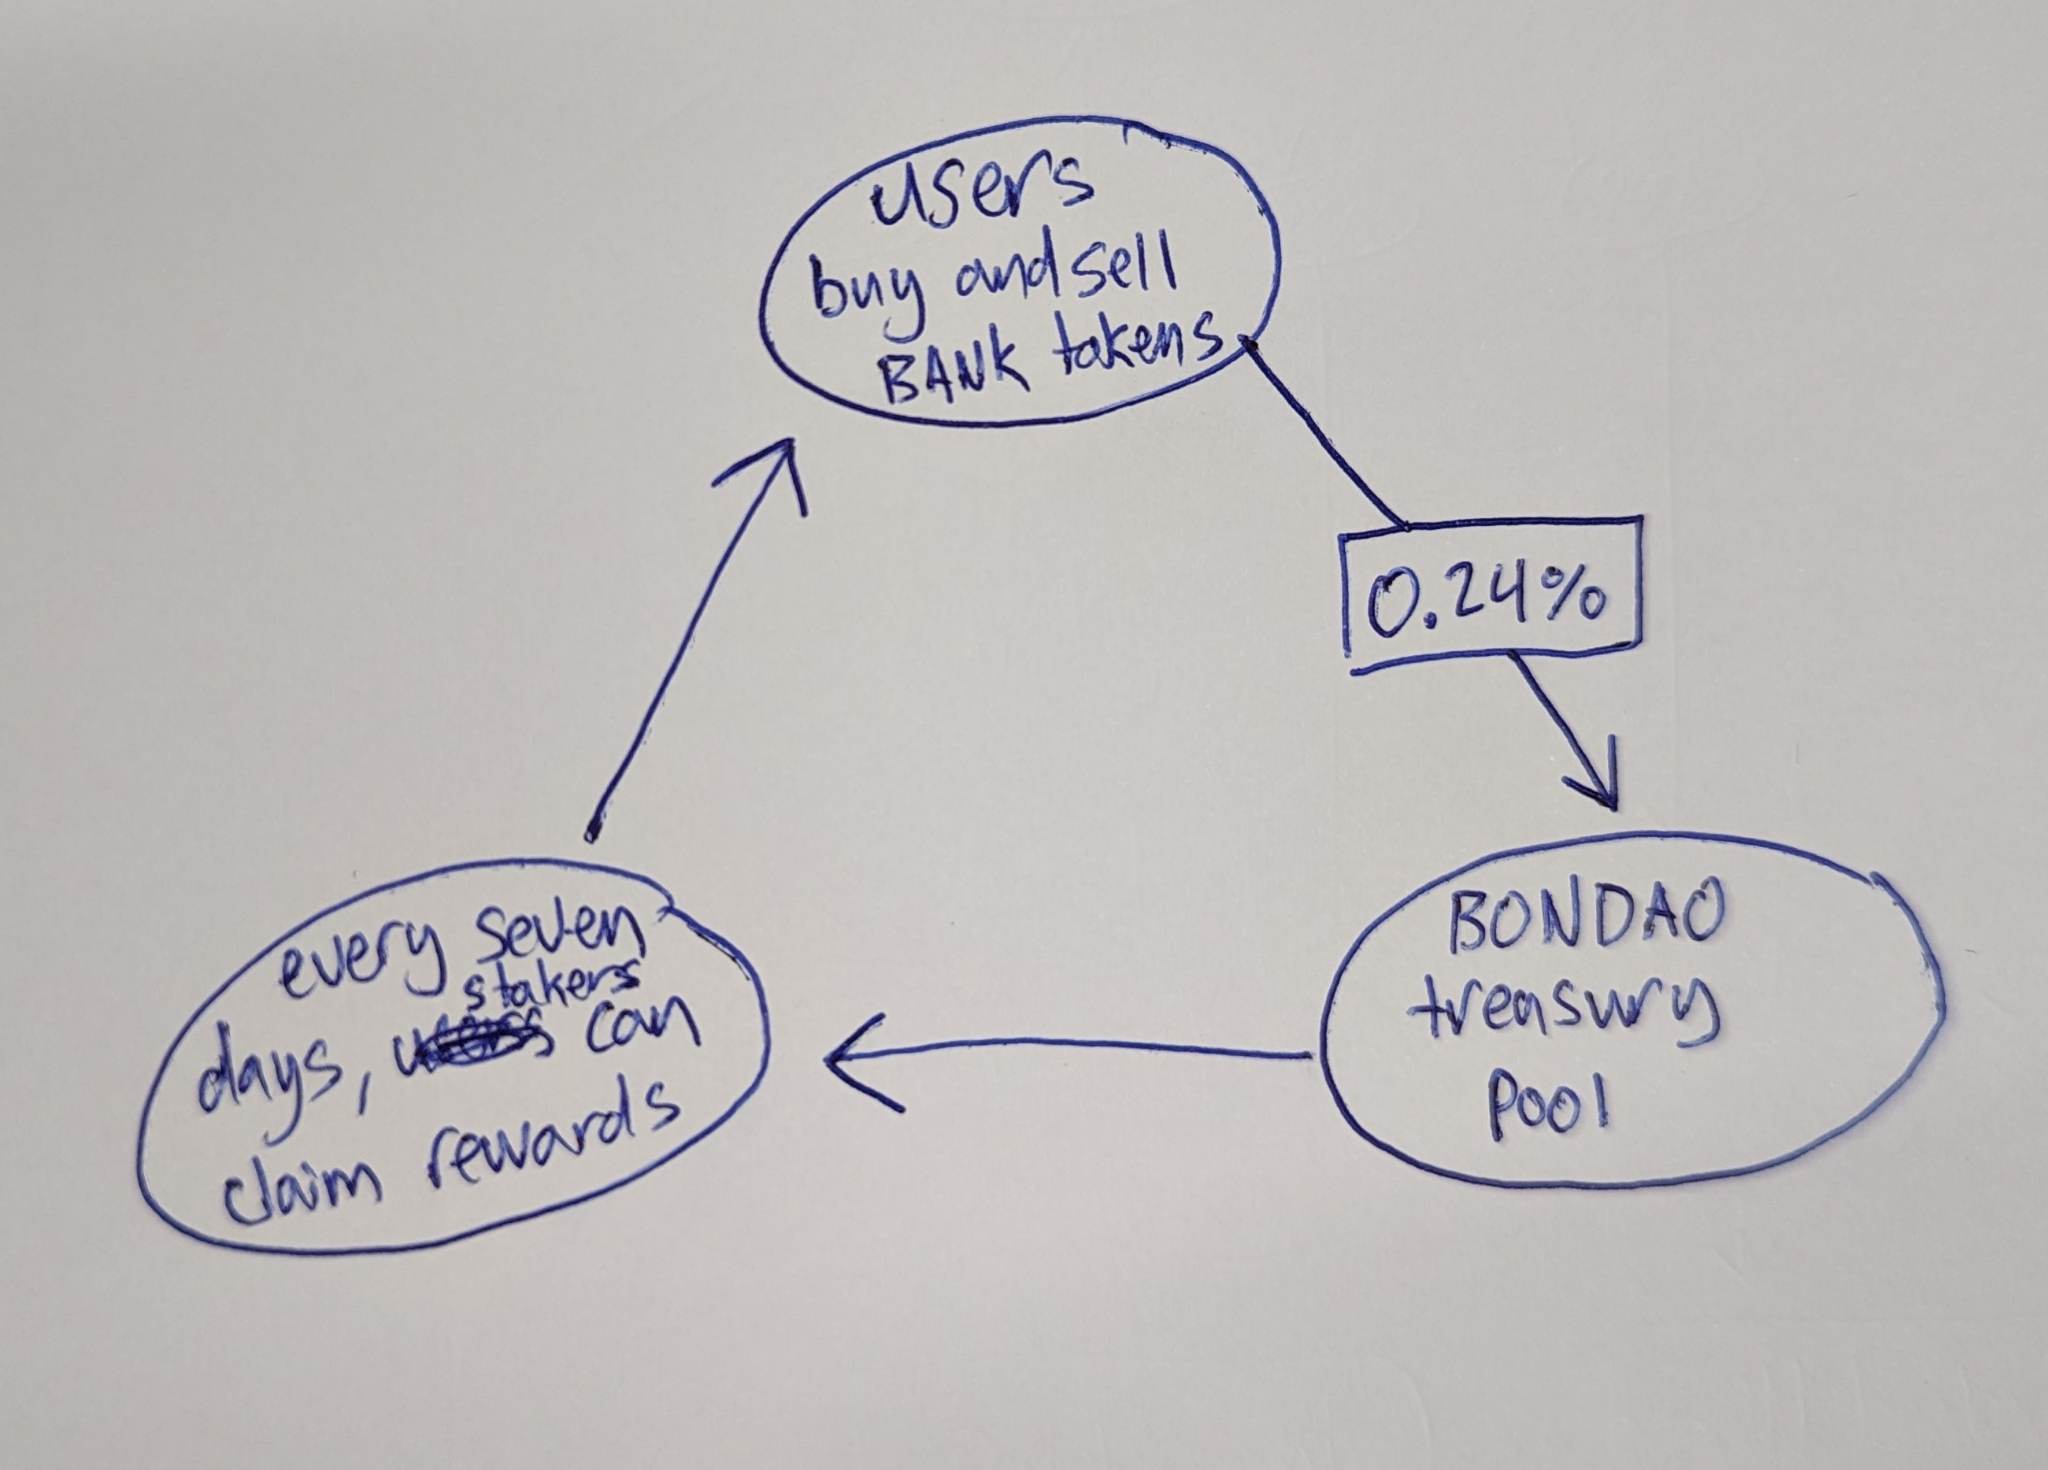 users
buy and sell
BANK tokens
0.24%
BONDAO
treasury
pool
every seven
stakers
days, can
claim rewards